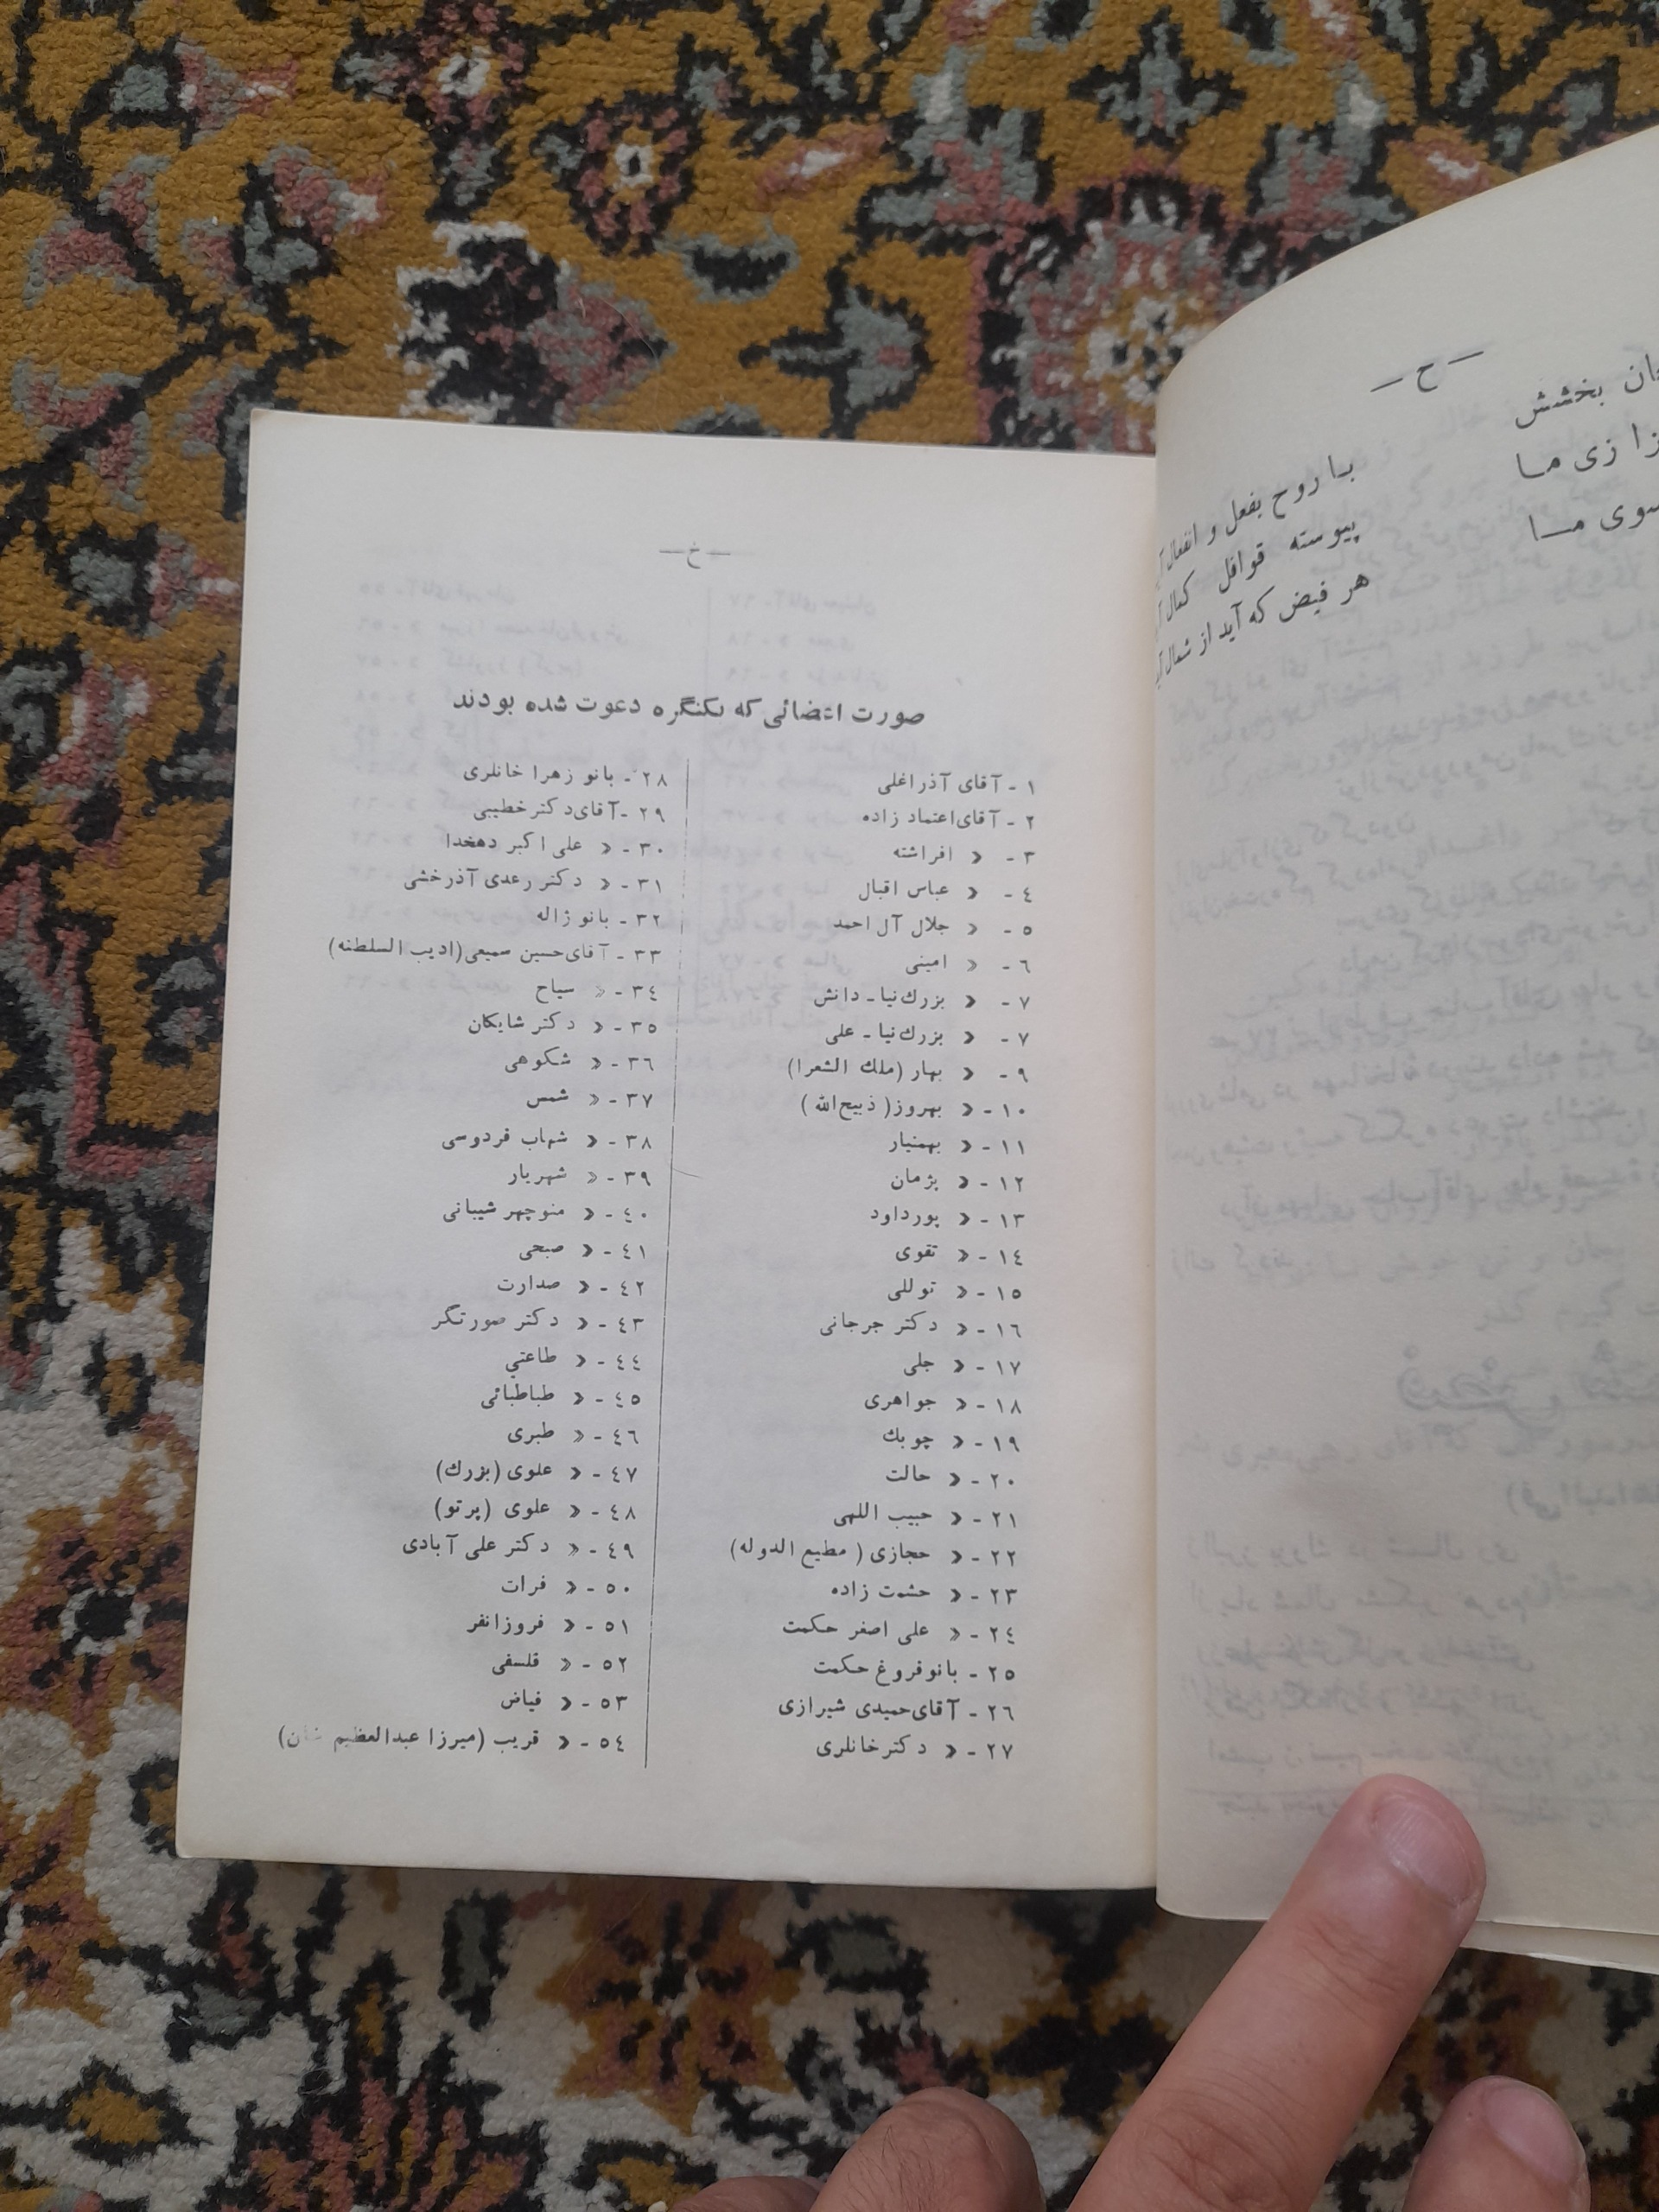 — خ —
صورت اعضائی که بکنگره دعوت شده بودند
۱ - آقای آذراغلی
۲ - آقای اعتماد زاده
۳ - « افراشته
٤ - « عباس اقبال
٥ - « جلال آل احمد
٦ - « امینی
۷ - « بزرك نیا - دانش
۷ - « بزرك نیا - علی
۹ - « بهار (ملك الشعرا)
۱۰ - « بهروز ( ذبیح الله )
۱۱ - « بهمنیار
۱۲ - « پژمان
۱۳ - « پورداود
۱٤ - « تقوی
۱٥ - « توللی
۱٦ - « دکتر جرجانی
۱۷ - « جلی
۱۸ - « جواهری
۱۹ - « چوبك
۲۰ - « حالت
۲۱ - « حبیب اللهی
۲۲ - « حجازی ( مطیع الدوله)
۲۳ - « حشمت زاده
۲٤ - « علی اصغر حکمت
۲٥ - بانو فروغ حکمت
۲٦ - آقای حمیدی شیرازی
۲۷ - « دکتر خانلری
۲۸ - بانو زهرا خانلری
۲۹ - آقای دکتر خطیبی
۳۰ - « علی اکبر دهخدا
۳۱ - « دکتر رعدی آذرخشی
۳۲ - بانو ژاله
۳۳ - آقای حسین سمیعی (ادیب السلطنه)
۳٤ - « سیاح
۳٥ - « دکتر شایکان
۳٦ - « شکوهی
۳۷ - « شمس
۳۸ - « شهاب فردوسی
۳۹ - « شهریار
٤۰ - « منوچهر شیبانی
٤۱ - « صبحی
٤۲ - « صدارت
٤۳ - « دکتر صورتگر
٤٤ - « طاعتی
٤٥ - « طباطبائی
٤٦ - « طبری
٤۷ - « علوی (بزرك)
٤۸ - « علوی (پرتو)
٤۹ - « دکتر علی آبادی
٥۰ - « فرات
٥۱ - « فروزانفر
٥۲ - « فلسفی
٥۳ - « فیاض
٥٤ - « قریب (میرزا عبدالعظیم خان)
— ح —
بخشش
زی ما
سوی ما
با روح بفعل و انفعال
پیوسته قوافل کمال
هر فیض که آید از شمال